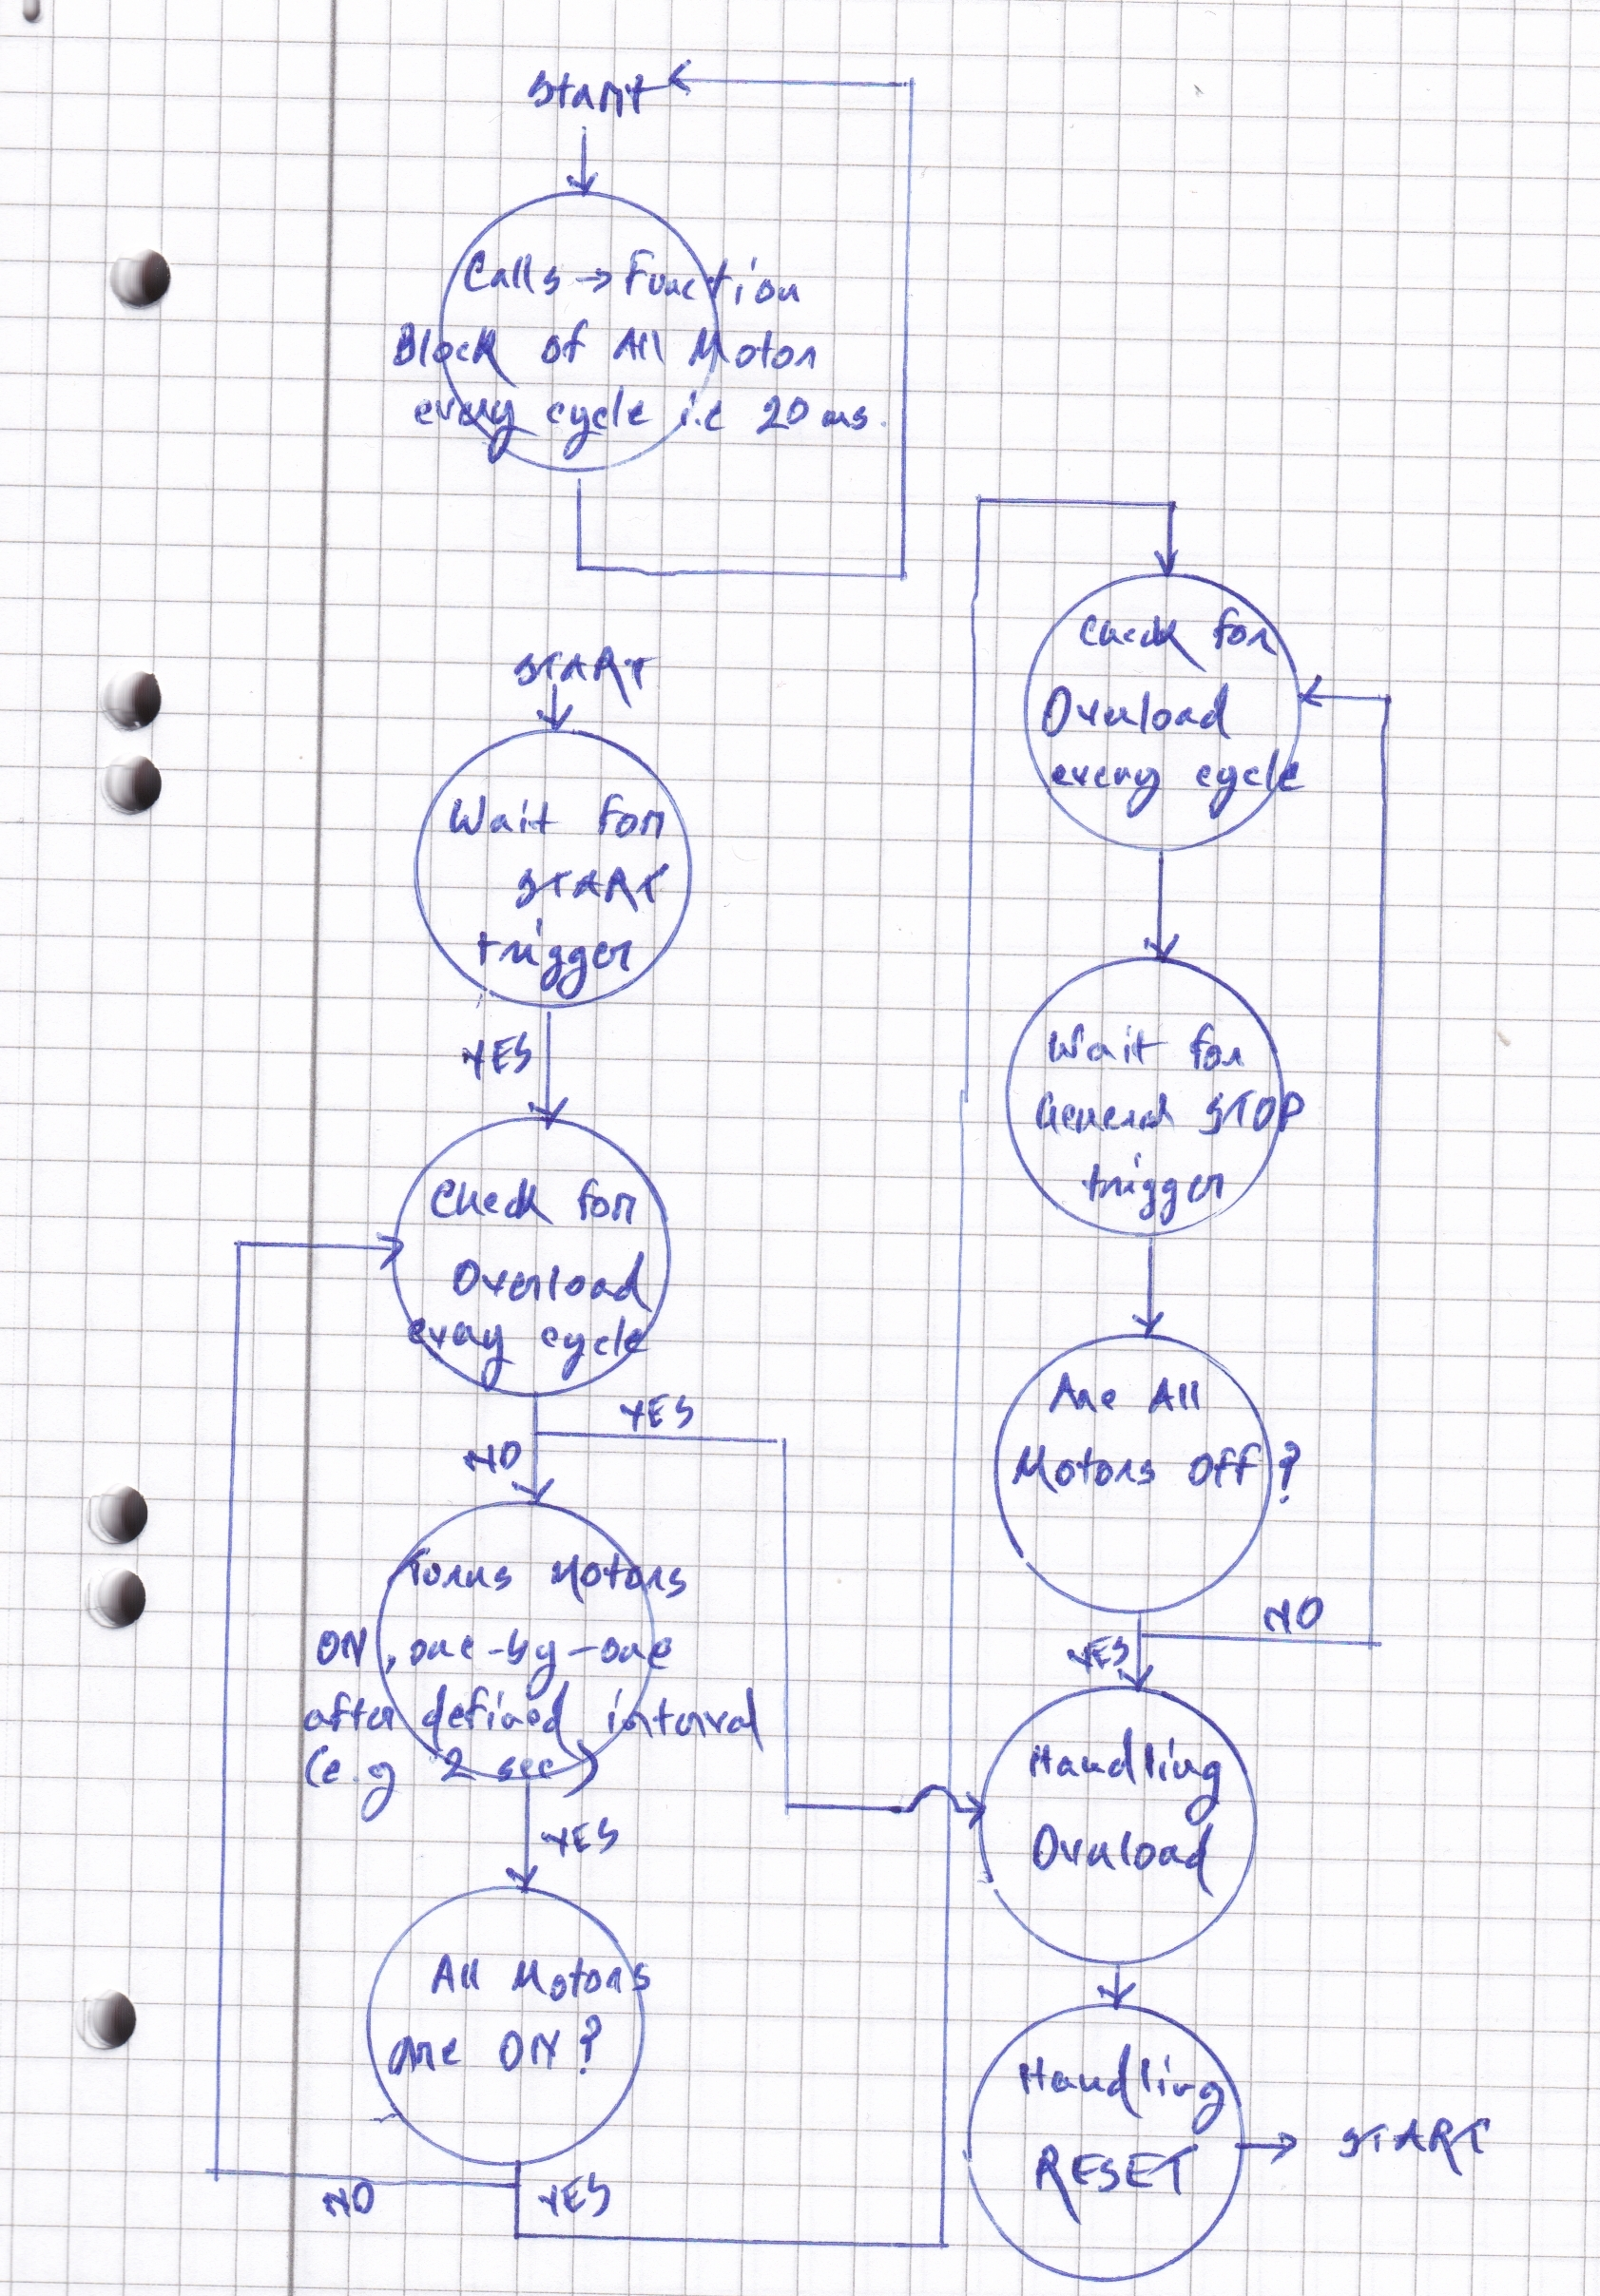 START
Calls → Function
Block of All Motor
every cycle i.e 20 ms.
START
Wait for
START
trigger
YES
Check for
Overload
every cycle
YES
NO
Turns Motors
ON, one-by-one
after defined interval
(e.g 2 sec)
YES
All Motors
are ON?
NO
YES
Check for
Overload
every cycle
Wait for
General STOP
trigger
Are All
Motors Off?
NO
YES
Handling
Overload
Handling
RESET
START